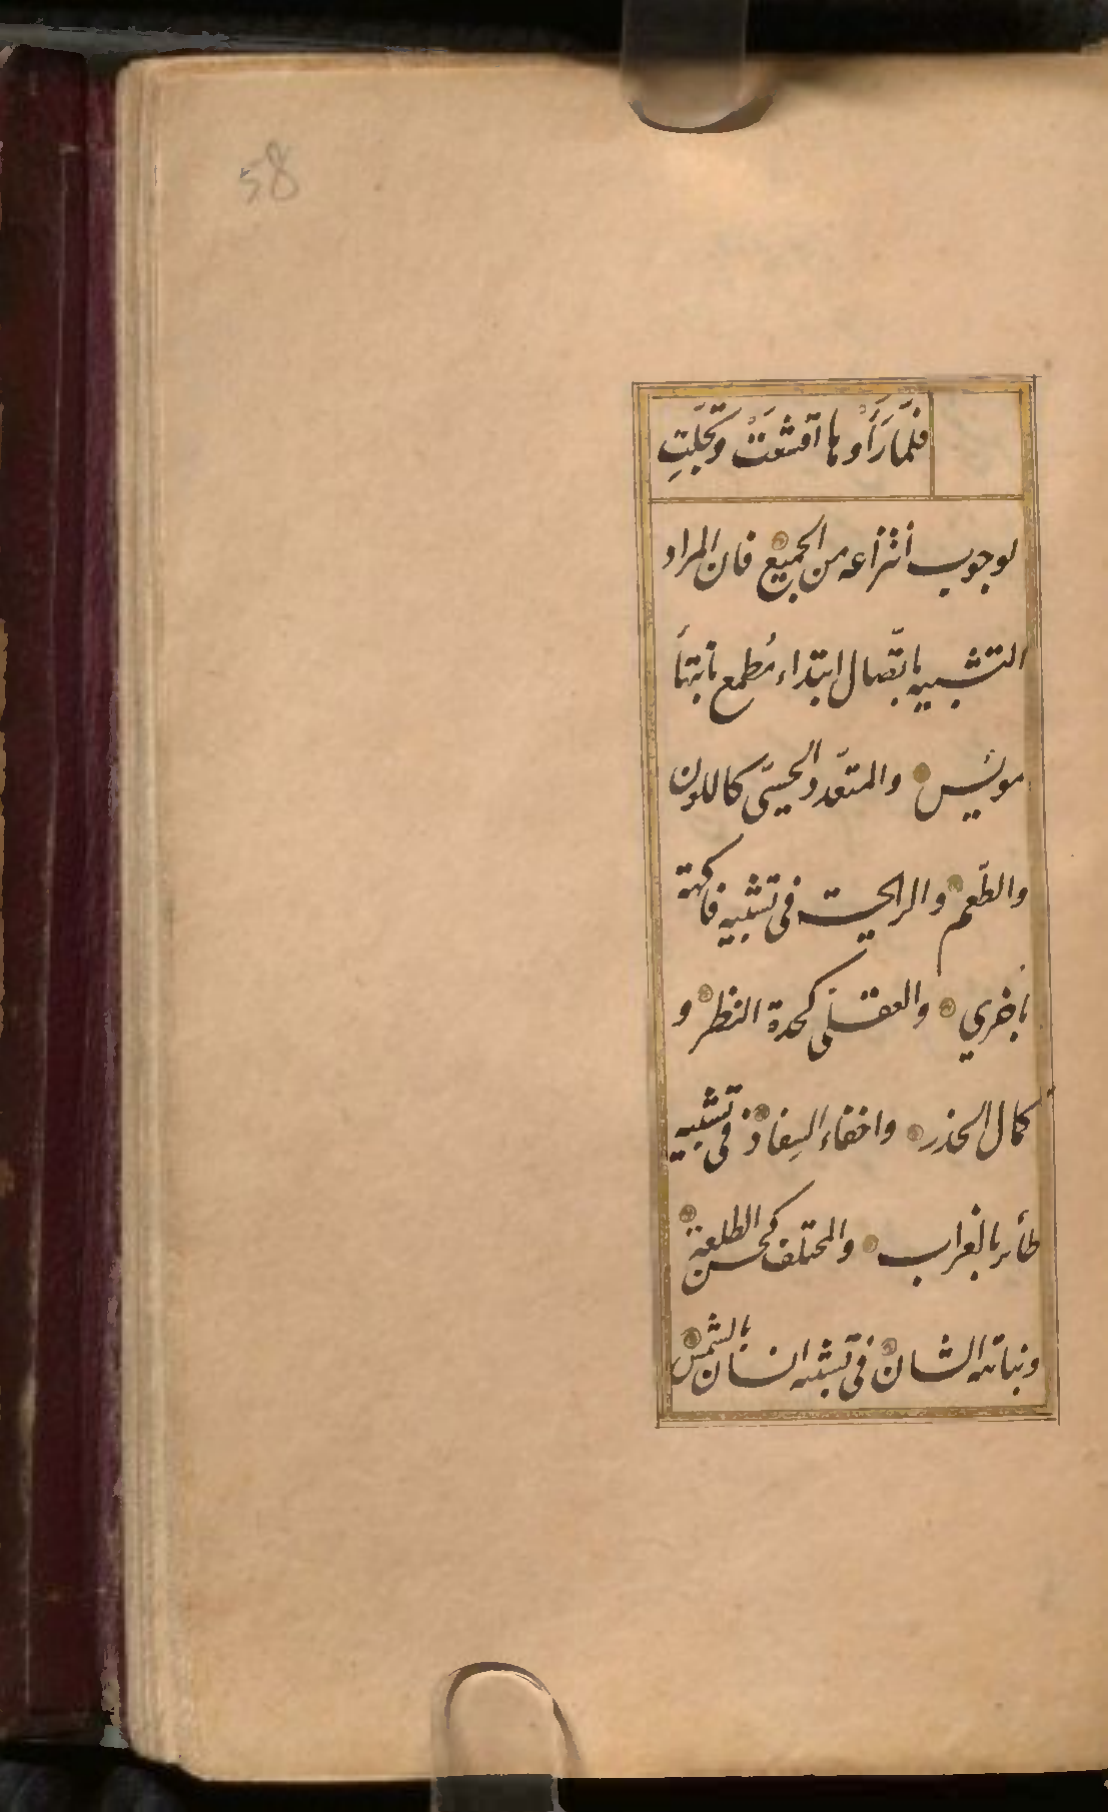 58
فلمّا رَأَوها اقشعَتْ وَتجلّتِ
لوجوب أنتزاعه من الجميع فان المراد
التشبيه باتّصال ابتداء مُطمع بانتهاً
مويس والمتعّدد الحسّى كاللون
والطّعم والرايحـة فى تشبيه فاكهة
باخري والعقلى كحدة النظر و
كمال الحذر واخفاء السِفاد فى تشبيه
طأئر بالغراب والمختلف كحسن الطلعة
ونباهة الشان فى تشبيه انسان بالشمس